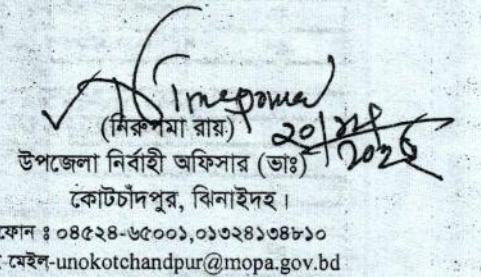 (নিরুপমা রায়)
উপজেলা নির্বাহী অফিসার (ভাঃ)
কোটচাঁদপুর, ঝিনাইদহ।
ফোন ঃ ০৪৫২৪-৬৫০০১,০১৩২৪১৩৪৮১০
মেইল-unokotchandpur@mopa.gov.bd